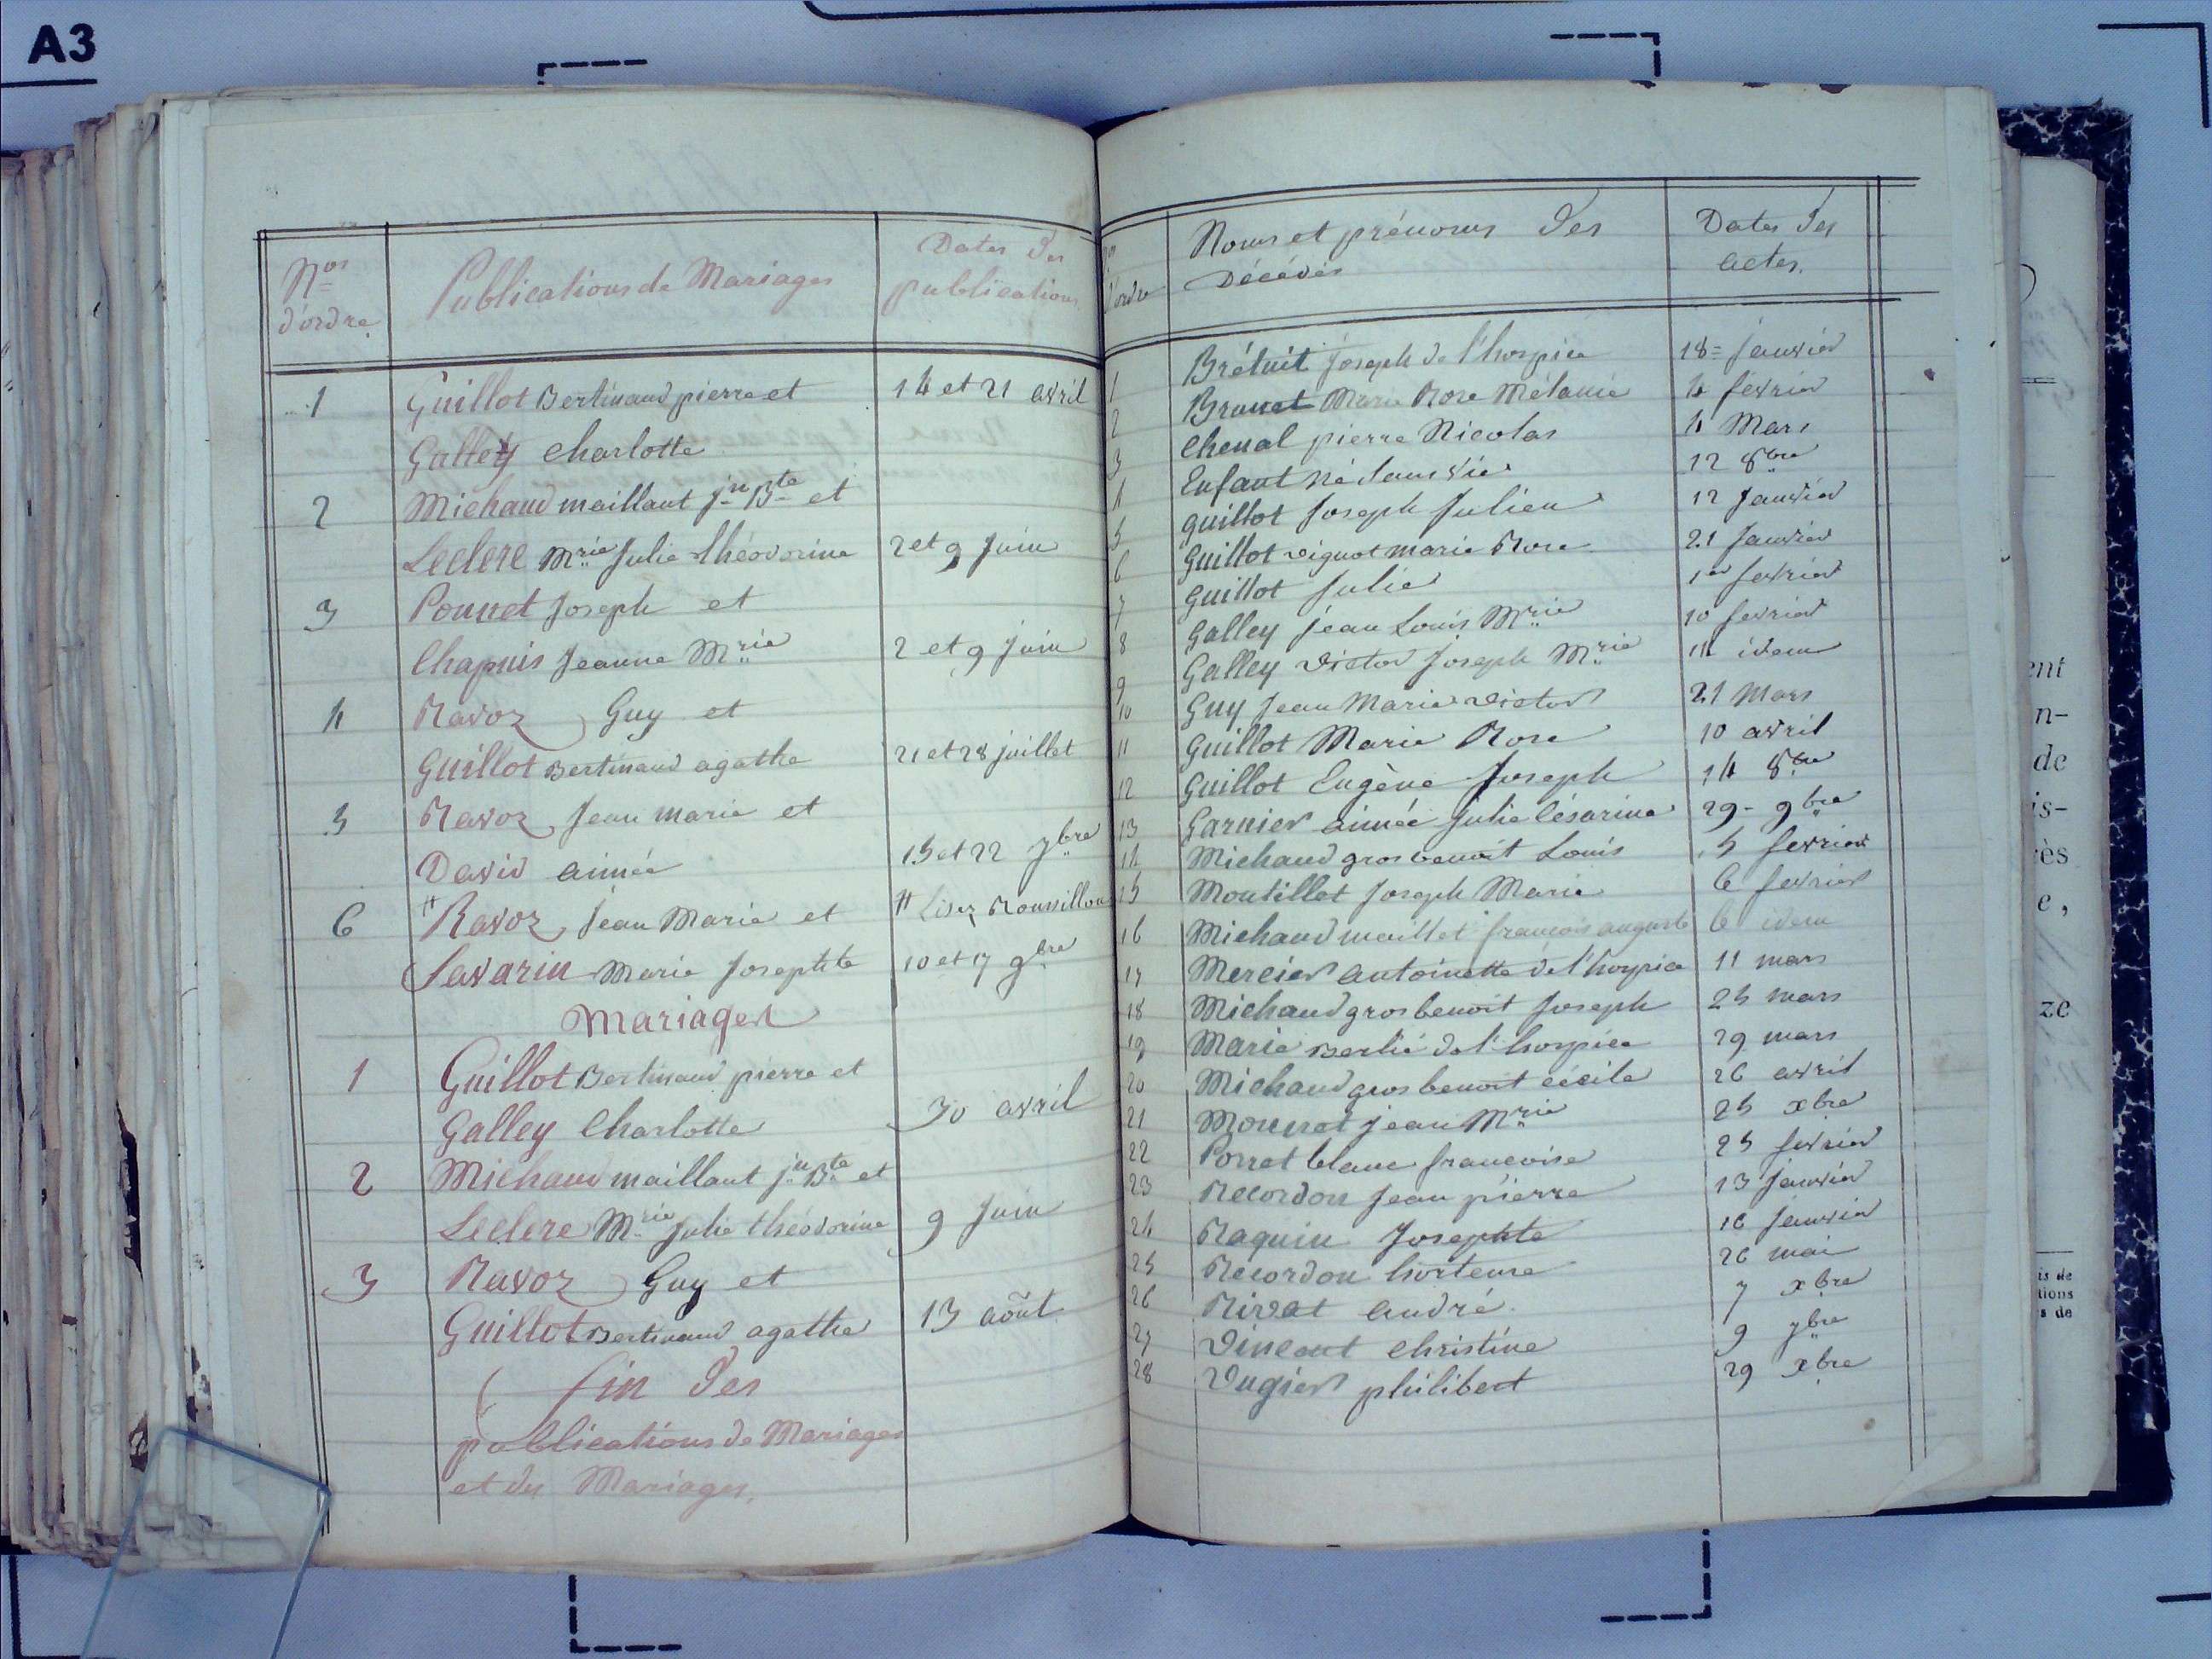 A3
Nos d'ordre
Publications de Mariages
Dates des publications
1 Guillot Bertinaud pierre et 14 et 21 avril
Galley charlotte
2 Michaud maillant jn Bte et
Leclerc Mrie Julie théodorine 2 et 9 Juin
3 Ponnet Joseph et
Chapuis Jeanne Mrie 2 et 9 juin
4 Ravoz Guy et
Guillot Bertinaud agathe 21 et 28 juillet
5 Ravoz Jean marie et
David aimée 15 et 22 7bre
6 # Ravoz Jean Marie et # Lisez Roussillon
Savarin Marie Josephte 10 et 17 9bre
Mariages
1 Guillot Bertinaud pierre et
Galley Charlotte 30 avril
2 Michaud maillant jn Bte et
Leclerc Mrie Julie théodorine 9 Juin
3 Ravoz Guy et
Guillot Bertinaud agathe 13 août
fin des
publications de Mariages
et des Mariages.
d'ordre
Noms et prénoms des
Décédés
Dates des
actes.
1 Brétuit Joseph de l'hospice 18 = Janvier
2 Brunet Marie Rose Mélanie 4 février
3 Chenal pierre Nicolas 4 Mars
4 Enfant né sans vie 12 8bre
5 guillot Joseph Julien 12 Janvier
6 Guillot vignot marie Rose 21 Janvier
7 Guillot Julie 1er fevrier
8 Galley jean Louis Mrie 10 fevrier
9 Galley Victor Joseph Mrie 14 idem
10 Guy Jean Marie victor 21 Mars
11 Guillot Marie Rose 10 avril
12 Guillot Eugène Joseph 14 8bre
13 Garnier aimée Julie Césarine 29 - 9bre
14 Michaud gros benoit Louis 5 fevrier
15 Montillet Joseph Marie 6 fevrier
16 Michaud maillet françois auguste 6 idem
17 Mercier antoinette de l'hospice 11 mars
18 Michaud gros benoit Joseph 25 mars
19 Marie Berlié de l'hospice 29 mars
20 Michaud gros benoit cécile 26 avril
21 Monnet jean Mrie 25 xbre
22 Porret blanc francoise 25 fevrier
23 Recordon Jean pierre 13 Janvier
24 Raquin Josephte 16 Janvier
25 Recordon hortense 26 mai
26 Rivat André 7 xbre
27 Vincent Christine 9 7bre
28 Vugier philibert 29 xbre
ent
n-
de
is-
rès
e,
ze
is de
tions
s de